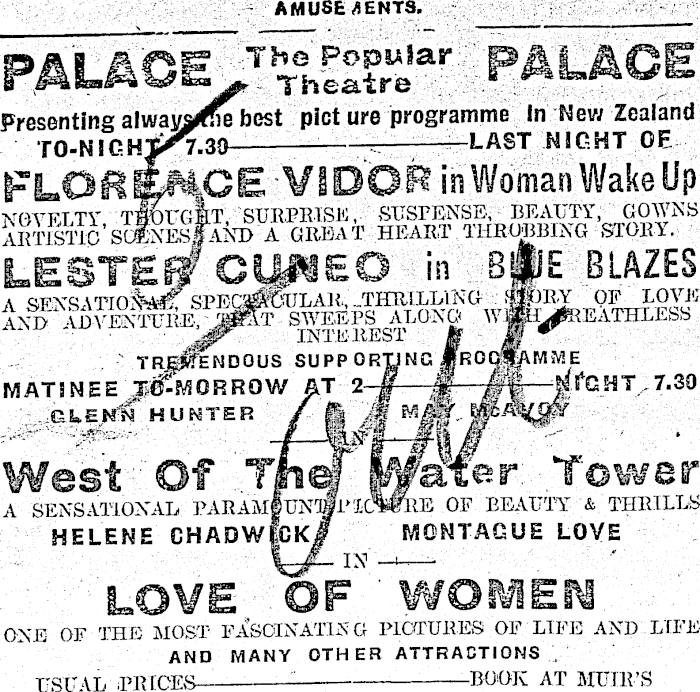 AMUSEMENTS.
PALACE The Popular Theatre PALACE
Presenting always the best picture programme In New Zealand
TO-NIGHT 7.30 LAST NIGHT OF
FLORENCE VIDOR in Woman Wake Up
NOVELTY, THOUGHT, SURPRISE, SUSPENSE, BEAUTY, GOWNS
ARTISTIC SCENES, AND A GREAT HEART THROBBING STORY.
LESTER CUNEO in BLUE BLAZES
A SENSATIONAL, SPECTACULAR, THRILLING STORY OF LOVE
AND ADVENTURE, THAT SWEEPS ALONG WITH BREATHLESS
INTEREST
TREMENDOUS SUPPORTING PROGRAMME
MATINEE TO-MORROW AT 2 NIGHT 7.30
GLENN HUNTER MAY McAVOY
IN
West Of The Water Tower
A SENSATIONAL PARAMOUNT PICTURE OF BEAUTY & THRILLS
HELENE CHADWICK MONTAGUE LOVE
IN
LOVE OF WOMEN
ONE OF THE MOST FASCINATING PICTURES OF LIFE AND LIFE
AND MANY OTHER ATTRACTIONS
USUAL PRICES BOOK AT MUIR'S